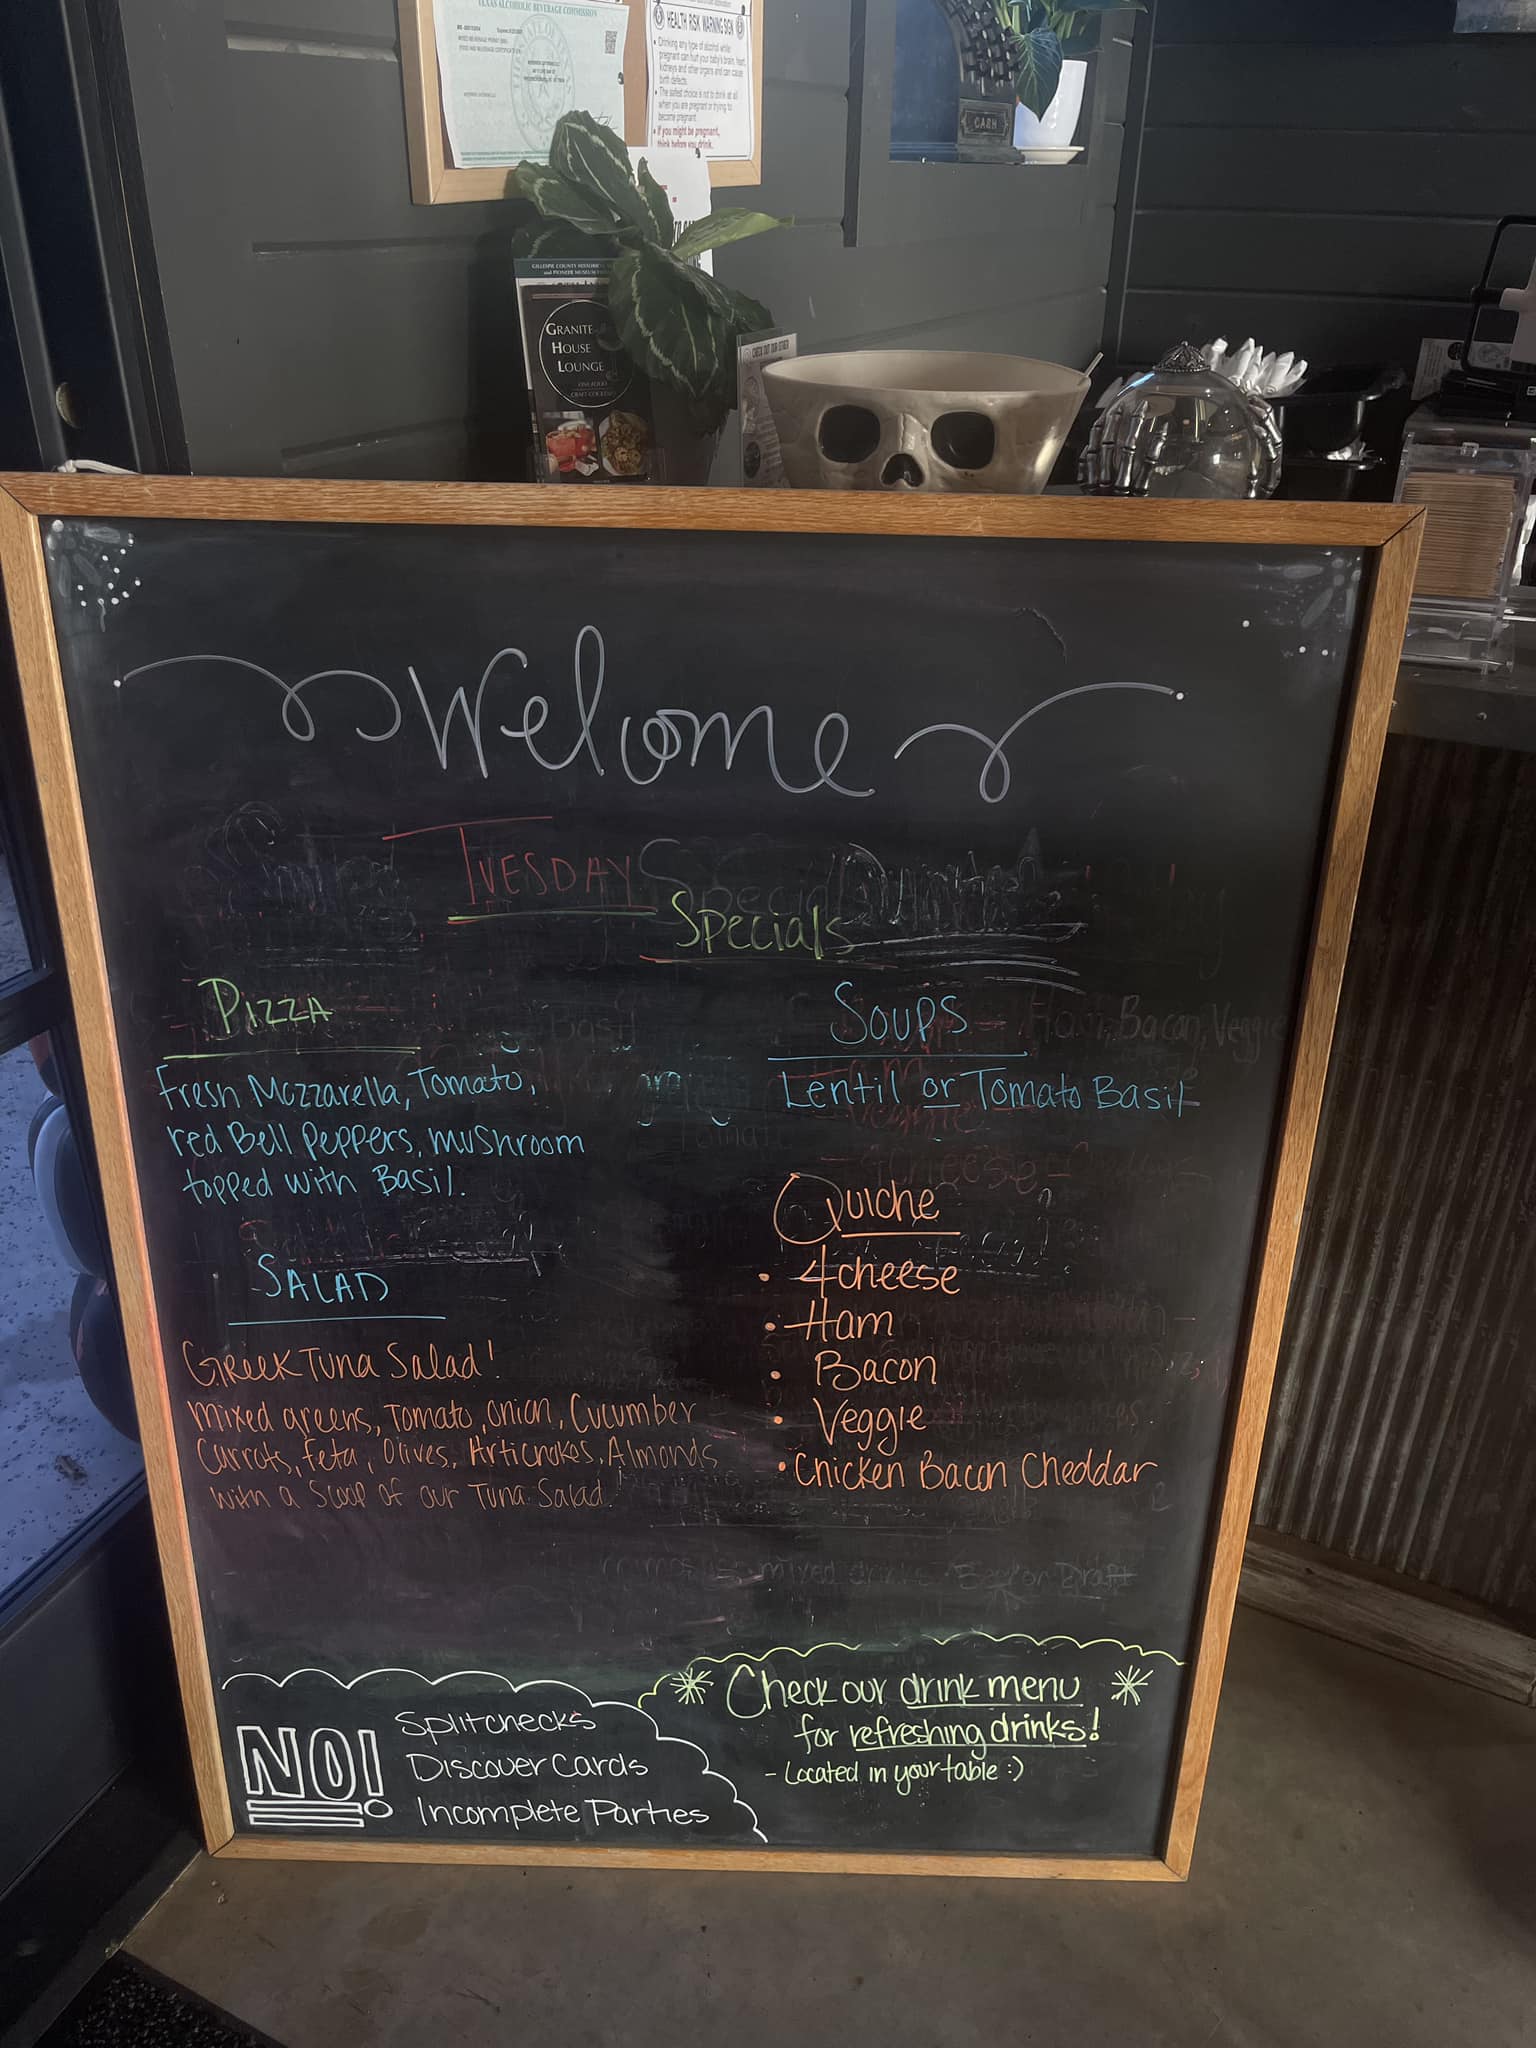 TEXAS ALCOHOLIC BEVERAGE COMMISSION
HEALTH RISK WARNING SIGN
• Drinking any type of alcohol while
pregnant can hurt your baby's brain, heart,
kidneys and other organs and can cause
birth defects.
• The safest choice is not to drink at all
when you are pregnant or trying to
become pregnant.
• If you might be pregnant,
think before you drink.
CASH
GILLESPIE COUNTY HISTORICAL
and PIONEER MUSEUM
GRANITE
HOUSE
LOUNGE
CHECK OUT OUR OTHER
Welcome
TUESDAY
Specials
PIZZA
Fresh Mozzarella, Tomato,
red Bell Peppers, Mushroom
topped with Basil.
SALAD
Greek Tuna Salad!
Mixed greens, Tomato, Onion, Cucumber
Carrots, Feta, Olives, Artichokes, Almonds
with a Scoop of our Tuna Salad!
SOUPS
Lentil or Tomato Basil
Quiche
• 4 cheese
• Ham
• Bacon
• Veggie
• Chicken Bacon Cheddar
NO!
Splitchecks
Discover Cards
Incomplete Parties
Check our drink menu
for refreshing drinks!
- Located in your table :)